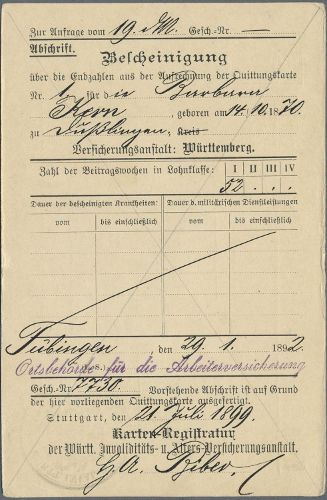 Zur Anfrage vom 19. d. M. Gesch.-Nr.
Abschrift.
Bescheinigung
über die Endzahlen aus der Aufrechnung der Quittungskarte
Nr. 1 für die Barbara
Kern, geboren am 14. 10. 1870.
zu Dußlingen, Kreis
Versicherungsanstalt: Württemberg.
Zahl der Beitragswochen in Lohnklasse: I II III IV
52 . . .
Dauer der bescheinigten Krankheiten: Dauer d. militärischen Dienstleistungen
vom bis einschließlich vom bis einschließlich
Tübingen den 29. 1. 1892.
Ortsbehörde für die Arbeiterversicherung
Gesch.-Nr. 7730. Vorstehende Abschrift ist auf Grund
der hier vorliegenden Quittungskarte ausgefertigt.
Stuttgart, den 21. Juli 1899.
Karten-Registratur
der Württ. Invaliditäts- u. Alters-Versicherungsanstalt.
Biber